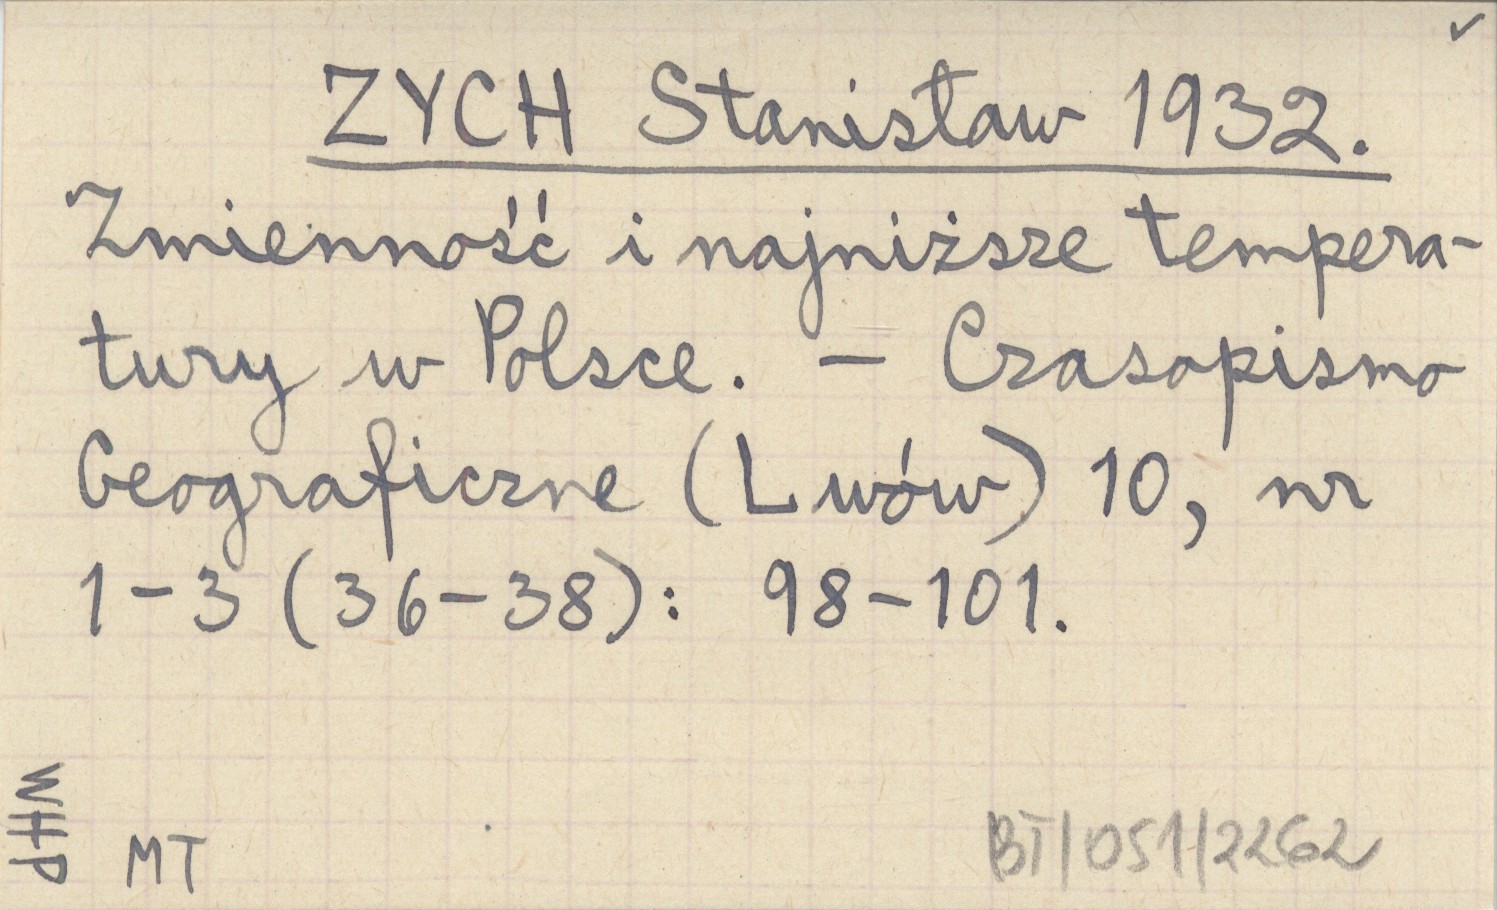 ZYCH Stanisław 1932.
Zmienność i najniższe tempera-
tury w Polsce. – Czasopismo
Geograficzne (Lwów) 10, nr
1-3 (36-38): 98-101.
WHP
MT
BT/051/2262